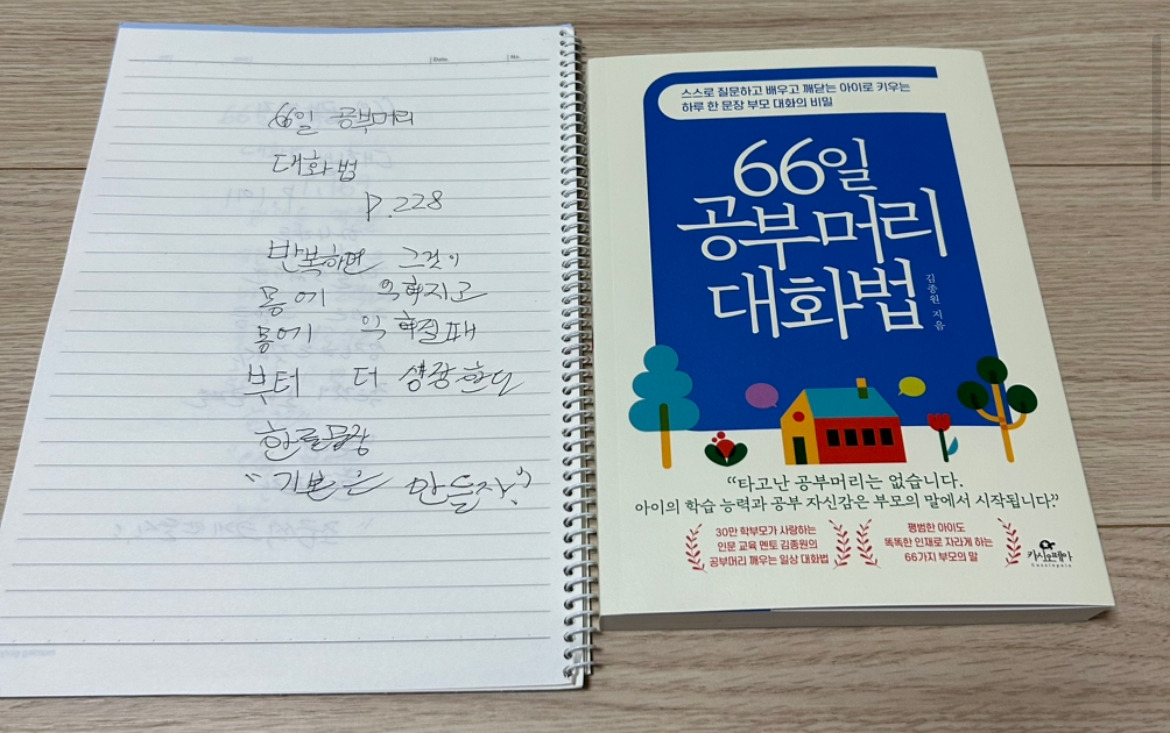 Date.
No.
66일 공부머리
대화법
P.228
반복하면 그것이
몸에 익혀지고
몸에 익혀질때
부터 더 성장한다
한줄문장
"기본은 만들자"
스스로 질문하고 배우고 깨닫는 아이로 키우는
하루 한 문장 부모 대화의 비밀
66일
공부머리
대화법
김종원 지음
“타고난 공부머리는 없습니다.
아이의 학습 능력과 공부 자신감은 부모의 말에서 시작됩니다.”
30만 학부모가 사랑하는
인문 교육 멘토 김종원의
공부머리 깨우는 일상 대화법
평범한 아이도
똑똑한 인재로 자라게 하는
66가지 부모의 말
카시오페아
Cassiopeia